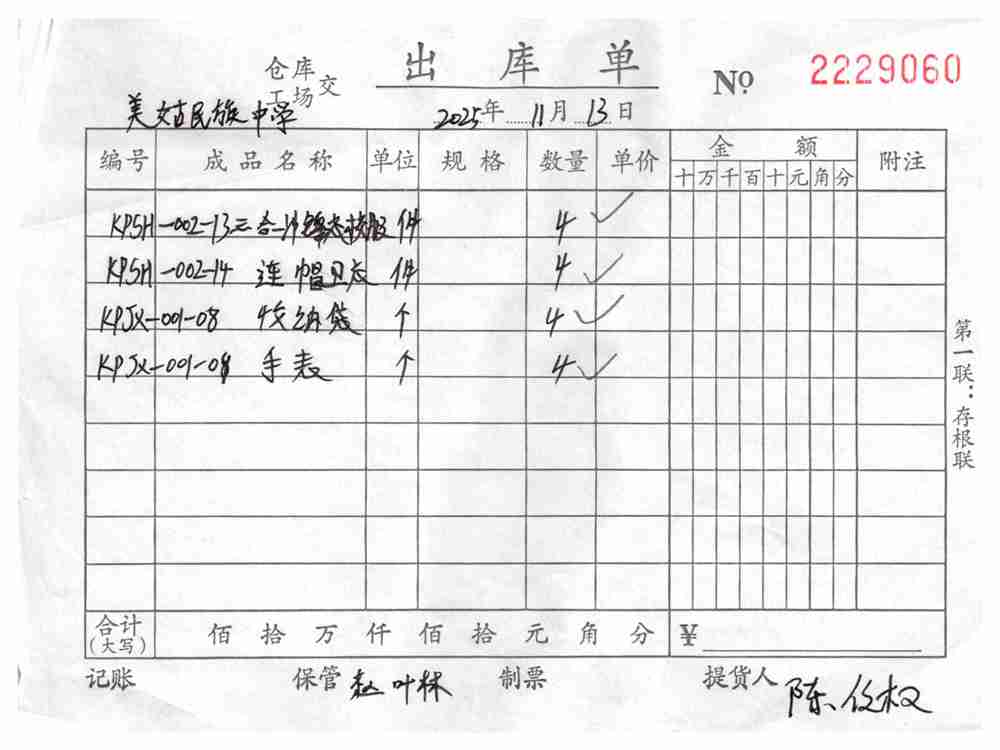 出库单
仓库
工场 交
No 2229060
美姑民族中学 2025年11月13日
编号 成品名称 单位 规格 数量 单价 金额 附注
十 万 千 百 十 元 角 分
KPSH-002-13 三合一冲锋衣校服 件 4 ✓
KPSH-002-14 连帽卫衣 件 4 ✓
KPJX-001-08 收纳袋 个 4 ✓
KPJX-001-08 手表 个 4 ✓
第一联：存根联
合计（大写） 佰 拾 万 仟 佰 拾 元 角 分 ¥
记账 保管 赵叶林 制票 提货人 陈